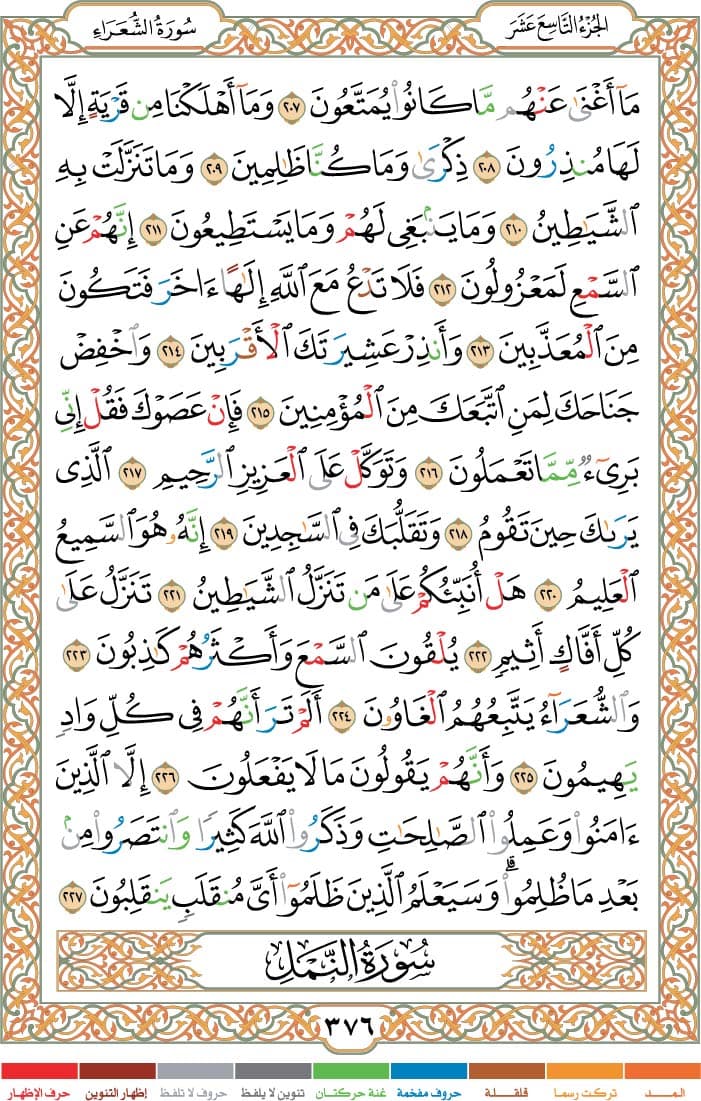 الجُزْءُ التَّاسِعَ عَشَرَ
سُورَةُ الشُّعَرَاءِ
مَآ أَغْنَىٰ عَنْهُم مَّا كَانُوا۟ يُمَتَّعُونَ ٢٠٧ وَمَآ أَهْلَكْنَا مِن قَرْيَةٍ إِلَّا
لَهَا مُنذِرُونَ ٢٠٨ ذِكْرَىٰ وَمَا كُنَّا ظَٰلِمِينَ ٢٠٩ وَمَا تَنَزَّلَتْ بِهِ
ٱلشَّيَٰطِينُ ٢١٠ وَمَا يَنۢبَغِى لَهُمْ وَمَا يَسْتَطِيعُونَ ٢١١ إِنَّهُمْ عَنِ
ٱلسَّمْعِ لَمَعْزُولُونَ ٢١٢ فَلَا تَدْعُ مَعَ ٱللَّهِ إِلَٰهًا ءَاخَرَ فَتَكُونَ
مِنَ ٱلْمُعَذَّبِينَ ٢١٣ وَأَنذِرْ عَشِيرَتَكَ ٱلْأَقْرَبِينَ ٢١٤ وَٱخْفِضْ
جَنَاحَكَ لِمَنِ ٱتَّبَعَكَ مِنَ ٱلْمُؤْمِنِينَ ٢١٥ فَإِنْ عَصَوْكَ فَقُلْ إِنِّى
بَرِىٓءٌ مِّمَّا تَعْمَلُونَ ٢١٦ وَتَوَكَّلْ عَلَى ٱلْعَزِيزِ ٱلرَّحِيمِ ٢١٧ ٱلَّذِى
يَرَىٰكَ حِينَ تَقُومُ ٢١٨ وَتَقَلُّبَكَ فِى ٱلسَّٰجِدِينَ ٢١٩ إِنَّهُۥ هُوَ ٱلسَّمِيعُ
ٱلْعَلِيمُ ٢٢٠ هَلْ أُنَبِّئُكُمْ عَلَىٰ مَن تَنَزَّلُ ٱلشَّيَٰطِينُ ٢٢١ تَنَزَّلُ عَلَىٰ
كُلِّ أَفَّاكٍ أَثِيمٍ ٢٢٢ يُلْقُونَ ٱلسَّمْعَ وَأَكْثَرُهُمْ كَٰذِبُونَ ٢٢٣
وَٱلشُّعَرَآءُ يَتَّبِعُهُمُ ٱلْغَاوُۥنَ ٢٢٤ أَلَمْ تَرَ أَنَّهُمْ فِى كُلِّ وَادٍ
يَهِيمُونَ ٢٢٥ وَأَنَّهُمْ يَقُولُونَ مَا لَا يَفْعَلُونَ ٢٢٦ إِلَّا ٱلَّذِينَ
ءَامَنُوا۟ وَعَمِلُوا۟ ٱلصَّٰلِحَٰتِ وَذَكَرُوا۟ ٱللَّهَ كَثِيرًا وَٱنتَصَرُوا۟ مِنۢ
بَعْدِ مَا ظُلِمُوا۟ ۗ وَسَيَعْلَمُ ٱلَّذِينَ ظَلَمُوٓا۟ أَىَّ مُنقَلَبٍ يَنقَلِبُونَ ٢٢٧
سُورَةُ النَّمْلِ
٣٧٦
المــد
تركت رسما
قلقلة
حروف مفخمة
غنة حركتان
تنوين لا يلفظ
حروف لا تلفظ
إظهار التنوين
حرف الإظهار